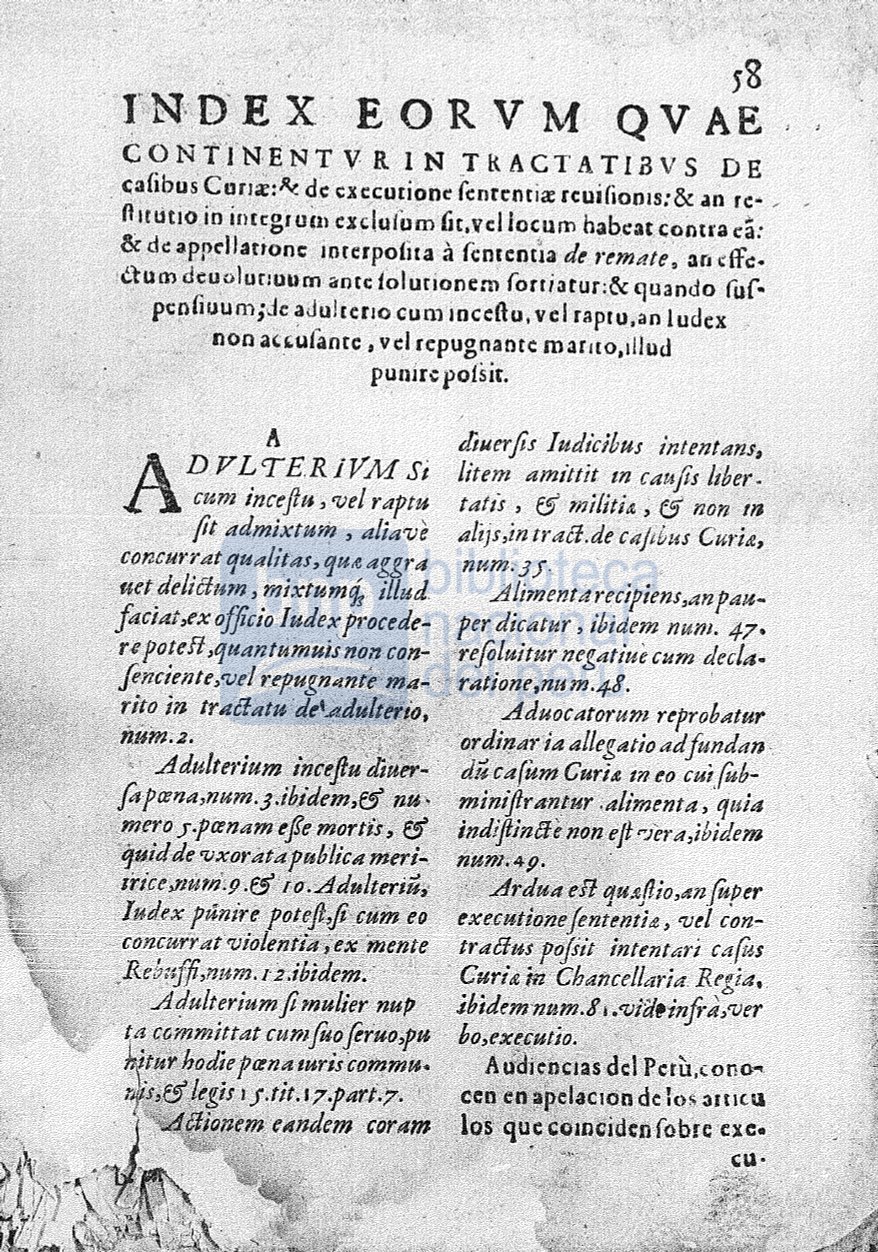 58
INDEX EORVM QVAE
CONTINENTVR IN TRACTATIBVS DE
casibus Curiæ: & de executione sententiæ reuisionis: & an re-
stitutio in integrum exclusum sit, vel locum habeat contra eã:
& de appellatione interposita à sententia de remate, an effe-
ctum deuolutiuum ante solutionem sortiatur: & quando sus-
pensiuum; de adulterio cum incestu, vel raptu, an Iudex
non accusante, vel repugnante marito, illud
punire possit.
A
ADVLTERIVM Si
cum incestu, vel raptu
sit admixtum, aliavè
concurrat qualitas, quæ aggra
uet delictum, mixtumq́; illud
faciat, ex officio Iudex procede-
re potest, quantumuis non con-
senciente, vel repugnante ma-
rito in tractatu de adulterio,
num. 2.
Adulterium incestu diuer-
sa pœna, num. 3. ibidem, & nu-
mero 5. pœnam esse mortis, &
quid de vxorata publica meri-
trice, num. 9. & 10. Adulteriũ,
Iudex punire potest, si cum eo
concurrat violentia, ex mente
Rebuffi, num. 12. ibidem.
Adulterium si mulier nup
ta committat cum suo seruo, pu
nitur hodie pœna iuris commu-
nis, & legis 15. tit. 17. part. 7.
Actionem eandem coram
diuersis Iudicibus intentans,
litem amittit in causis liber-
tatis, & militiæ, & non in
alijs, in tract. de casibus Curiæ,
num. 35.
Alimenta recipiens, an pau-
per dicatur, ibidem num. 47.
resoluitur negatiue cum decla-
ratione, num. 48.
Aduocatorum reprobatur
ordinaria allegatio ad fundan
dũ casum Curiæ in eo cui sub-
ministrantur alimenta, quia
indistincte non est vera, ibidem
num. 49.
Ardua est quæstio, an super
executione sententiæ, vel con-
tractus possit intentari casus
Curiæ in Chancellaria Regia,
ibidem num. 81. vide infra, ver
bo, executio.
Audiencias del Perù, cono-
cen en apelacion de los articu
los que coinciden sobre exe-
cu-
biblioteca
nacional
del perú